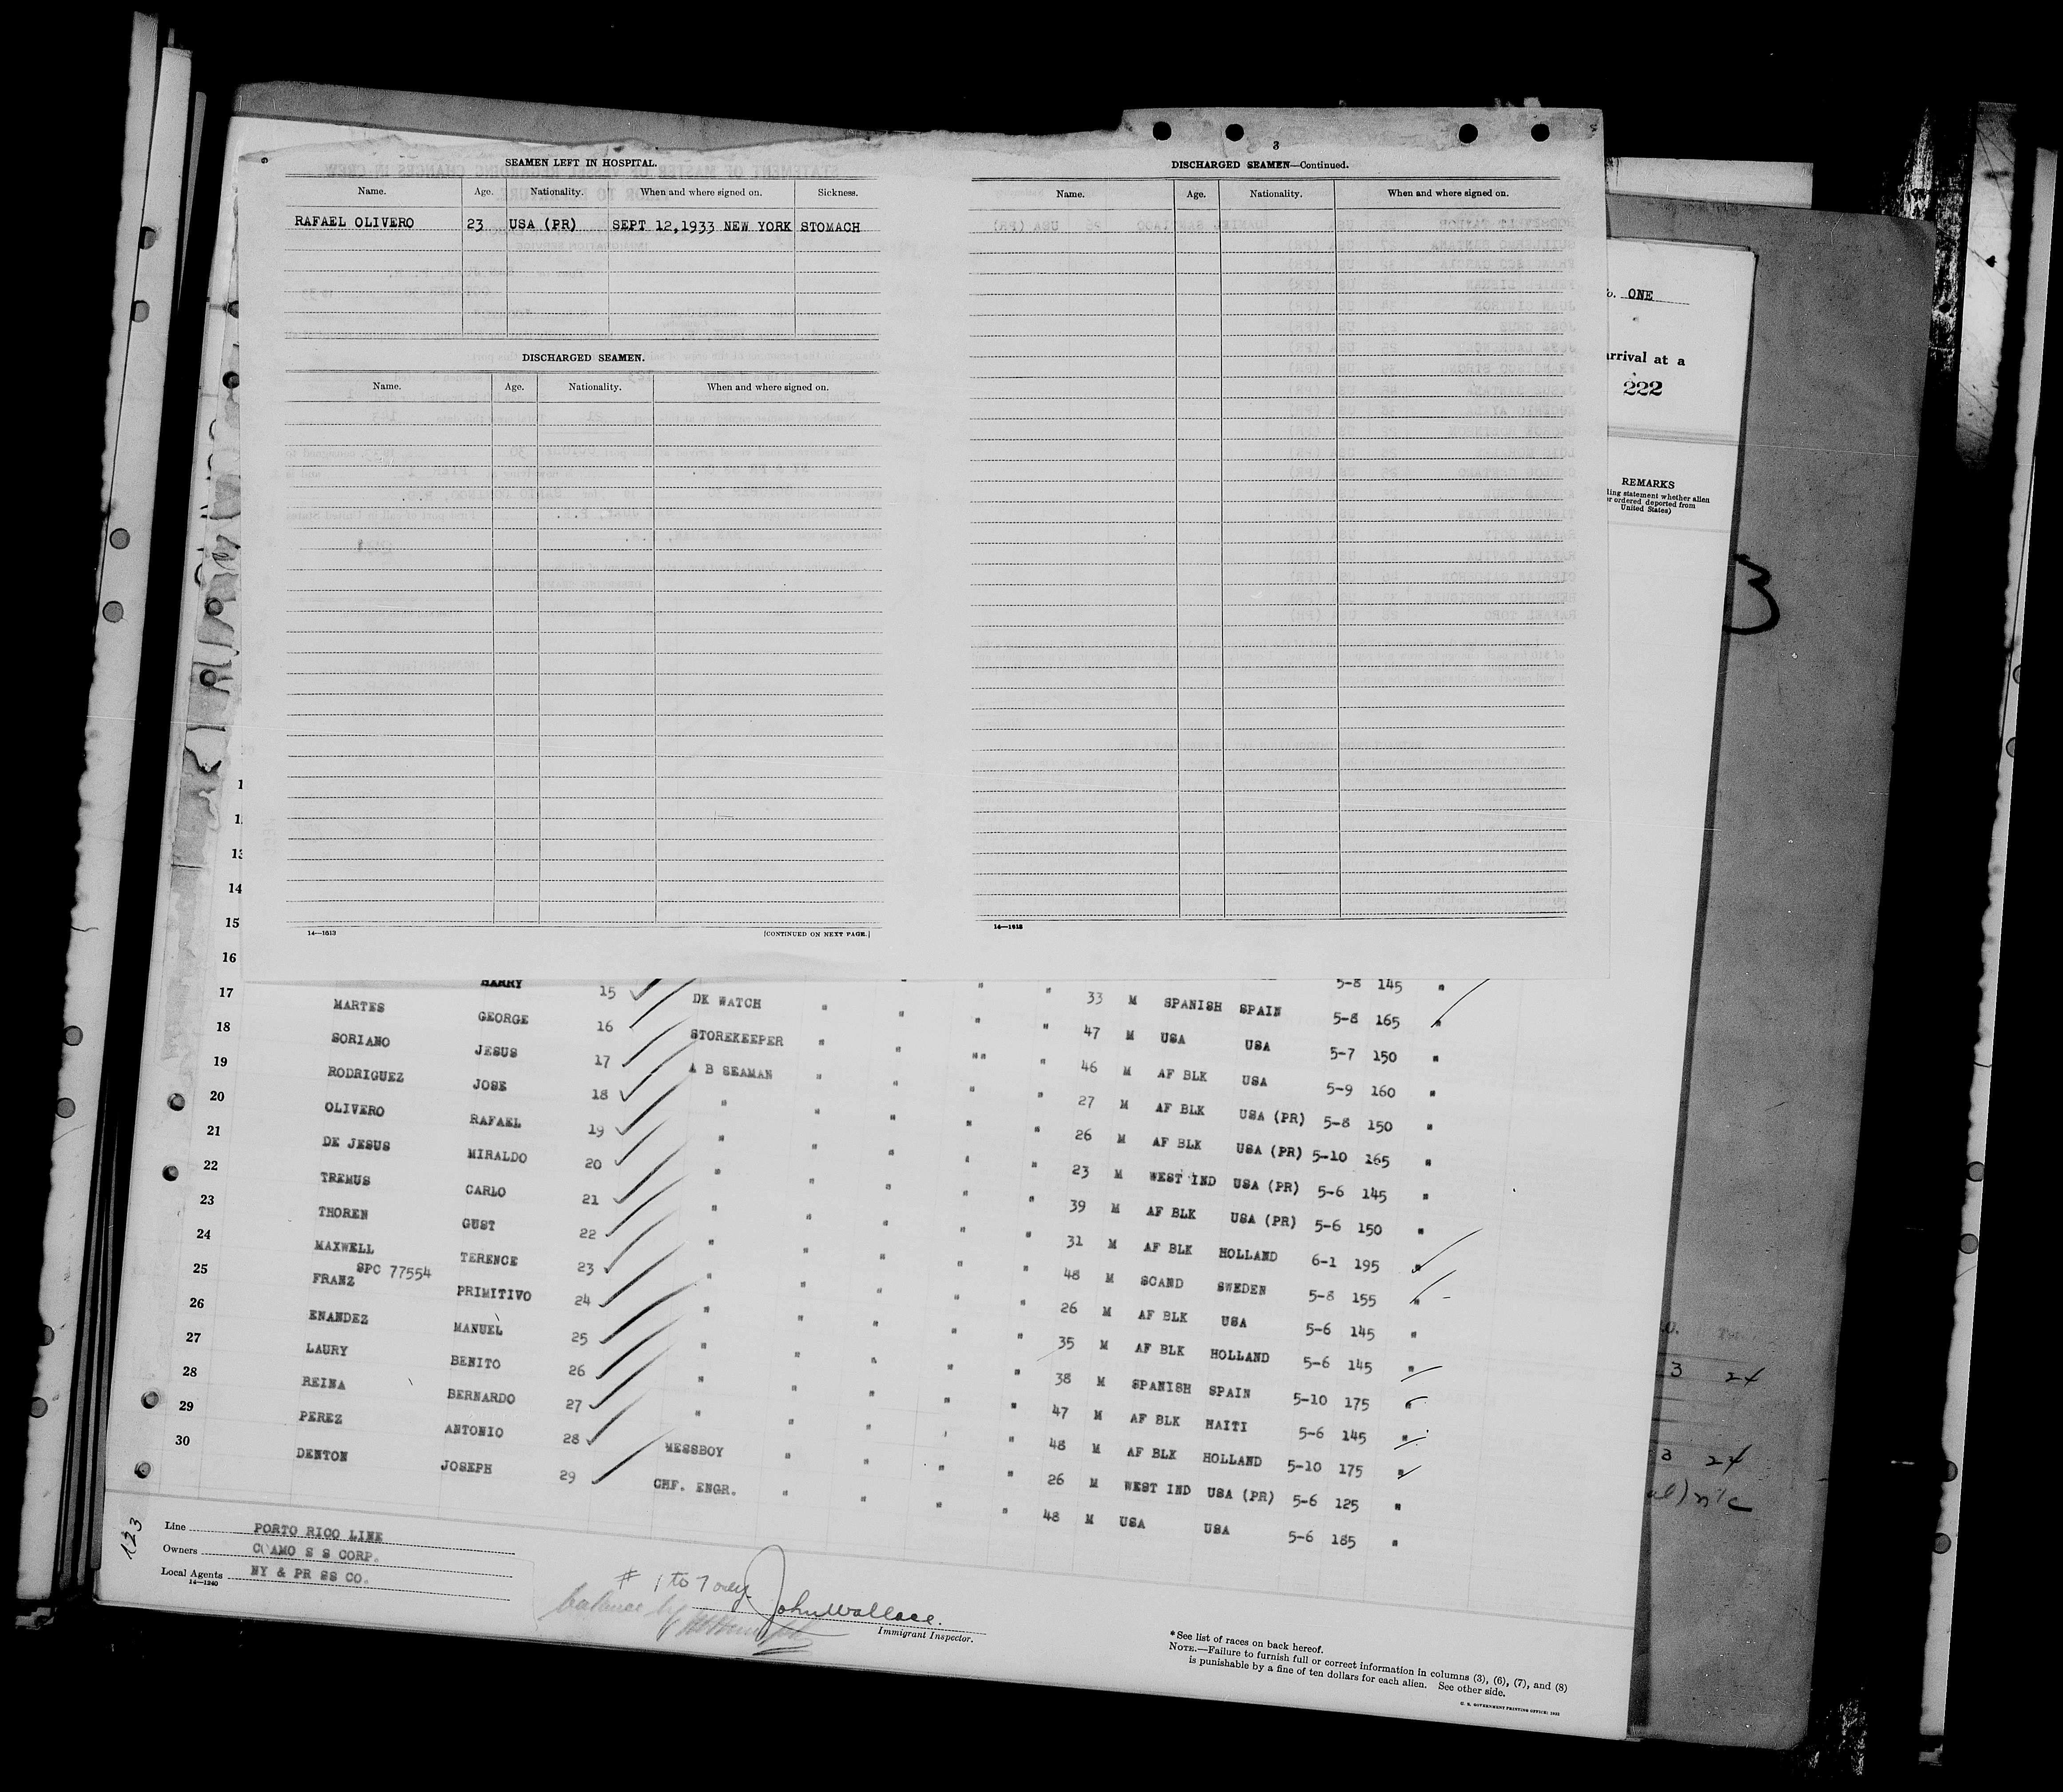 3
SEAMEN LEFT IN HOSPITAL.
Name. Age. Nationality. When and where signed on. Sickness.
RAFAEL OLIVERO 23 USA (PR) SEPT 12,1933 NEW YORK STOMACH
DISCHARGED SEAMEN.
Name. Age. Nationality. When and where signed on.
14—1613 [CONTINUED ON NEXT PAGE.]
DISCHARGED SEAMEN—Continued.
Name. Age. Nationality. When and where signed on.
14—1613
ONE
arrival at a
222
REMARKS
ordered deported from
United States)
3
13
14
5-8 145 "
15 33 M SPANISH SPAIN 5-8 165 "
16 HARRY 15 DK WATCH " " " 47 M USA USA 5-7 150 "
17 MARTES GEORGE 16 STOREKEEPER " " " 46 M AF BLK USA 5-9 160 "
18 SORIANO JESUS 17 A B SEAMAN " " " 27 M AF BLK USA (PR) 5-8 150 "
19 RODRIGUEZ JOSE 18 " " " " 26 M AF BLK USA (PR) 5-10 165 "
20 OLIVERO RAFAEL 19 " " " " 23 M WEST IND USA (PR) 5-6 145 "
21 DE JESUS MIRALDO 20 " " " " 39 M AF BLK USA (PR) 5-6 150 "
22 TREMUS CARLO 21 " " " " 31 M AF BLK HOLLAND 6-1 195 "
23 THOREN GUST 22 " " " " 48 M SCAND SWEDEN 5-8 155 "
24 MAXWELL TERENCE 23 " " " " 26 M AF BLK USA 5-6 145 "
SPC 77554
25 FRANZ PRIMITIVO 24 " " " " 35 M AF BLK HOLLAND 5-6 145 "
26 ENANDEZ MANUEL 25 " " " " 38 M SPANISH SPAIN 5-10 175 "
27 LAURY BENITO 26 " " " " 47 M AF BLK HAITI 5-6 145 "
28 REINA BERNARDO 27 " " " " 48 M AF BLK HOLLAND 5-10 175 "
29 PEREZ ANTONIO 28 MESSBOY " " " 26 M WEST IND USA (PR) 5-6 125 "
30 DENTON JOSEPH 29 CHF. ENGR. " " " 48 M USA USA 5-6 185 "
3 24
3 24
123
Line PORTO RICO LINE
Owners COAMO S S CORP.
Local Agents NY & PR SS CO.
14—1240
# 1 to 7 only John Wallace.
balance by
Immigrant Inspector.
*See list of races on back hereof.
NOTE.—Failure to furnish full or correct information in columns (3), (6), (7), and (8)
is punishable by a fine of ten dollars for each alien. See other side.
U. S. GOVERNMENT PRINTING OFFICE: 1933